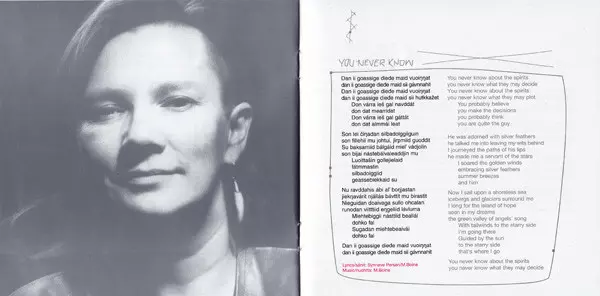 YOU NEVER KNOW
Dan ii goassige diede maid vuoiŋŋat
dan ii goassige diede maid vuoiŋŋat
dan ii goassige diede maid sii gávnnahit
dan ii goassige diede maid sii hutkkažet
Don várra ieš gal navddát
don dat mearridat
Don várra ieš gal gáttát
don dat almmái leat
Son lei čiŋadan silbadolggiigun
son
mu johtui, jirpmiid guoddit
Su baksamid bálgáid mief vádjolin
son bijai nástebálvaleaddjin mu
Luoittašin gollejielaid
fátmmastin
silbadolggiid
geassebiekkaid su
Nu ravddahis ábi al' borjjastan
jiekŋavárit rájáidis bávttit mu birastit
Nieguidan doaivaga sullo ohcalan
runodan vilttiid eŋgeliid lávluma
Miehtebiggii nástiid beallái
dohko fal
Suŋadan miehtebealvái
dohko fal
Dan ii goassige diede maid vuoiŋŋat
dan ii goassige diede maid sii gávnnahit
Lyrics/sánit: Synnøve Persen/M.Boine
Music/nuohtta: M.Boine
You never know about the spirits
you never know what they may decide
You never know about the spirits
you never know what they may plot
You probably believe
you make the decisions
you probably think
you are quite the guy
He was adorned with silver feathers
he talked me into leaving my wits behind
I journeyed the paths of his lips
he made me a servant of the stars
I soared the golden winds
embracing silver feathers
summer breezes
and him
Now I sail upon a shoreless sea
icebergs and glaciers surround me
I long for the island of hope
seen in my dreams
the green valley of angels' song
With tailwinds to the starry side
I'm going there
Guided by the sun
to the starry side
that's where I go
You never know about the spirits
you never know what they may decide